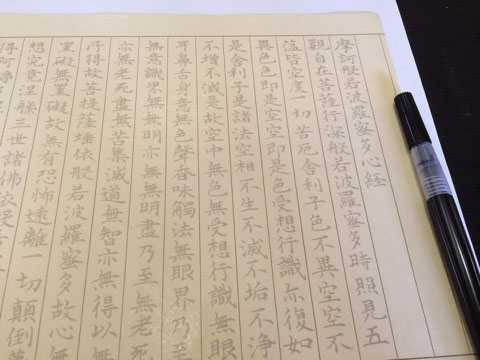 摩訶般若波羅蜜多心経
觀自在菩薩行深般若波羅蜜多時照見五
蘊皆空度一切苦厄舎利子色不異空空不
異色色即是空空即是色受想行識亦復如
是舎利子是諸法空相不生不滅不垢不浄
不増不減是故空中無色無受想行識無眼
耳鼻舌身意無色聲香味觸法無眼界乃至
無意識界無無明亦無無明盡乃至無老死
亦無老死盡無苦集滅道無智亦無得以無
所得故菩提薩埵依般若波羅蜜多故心無
罣礙無罣礙故無有恐怖遠離一切顛倒夢
想究竟涅槃三世諸佛依般
得阿耨